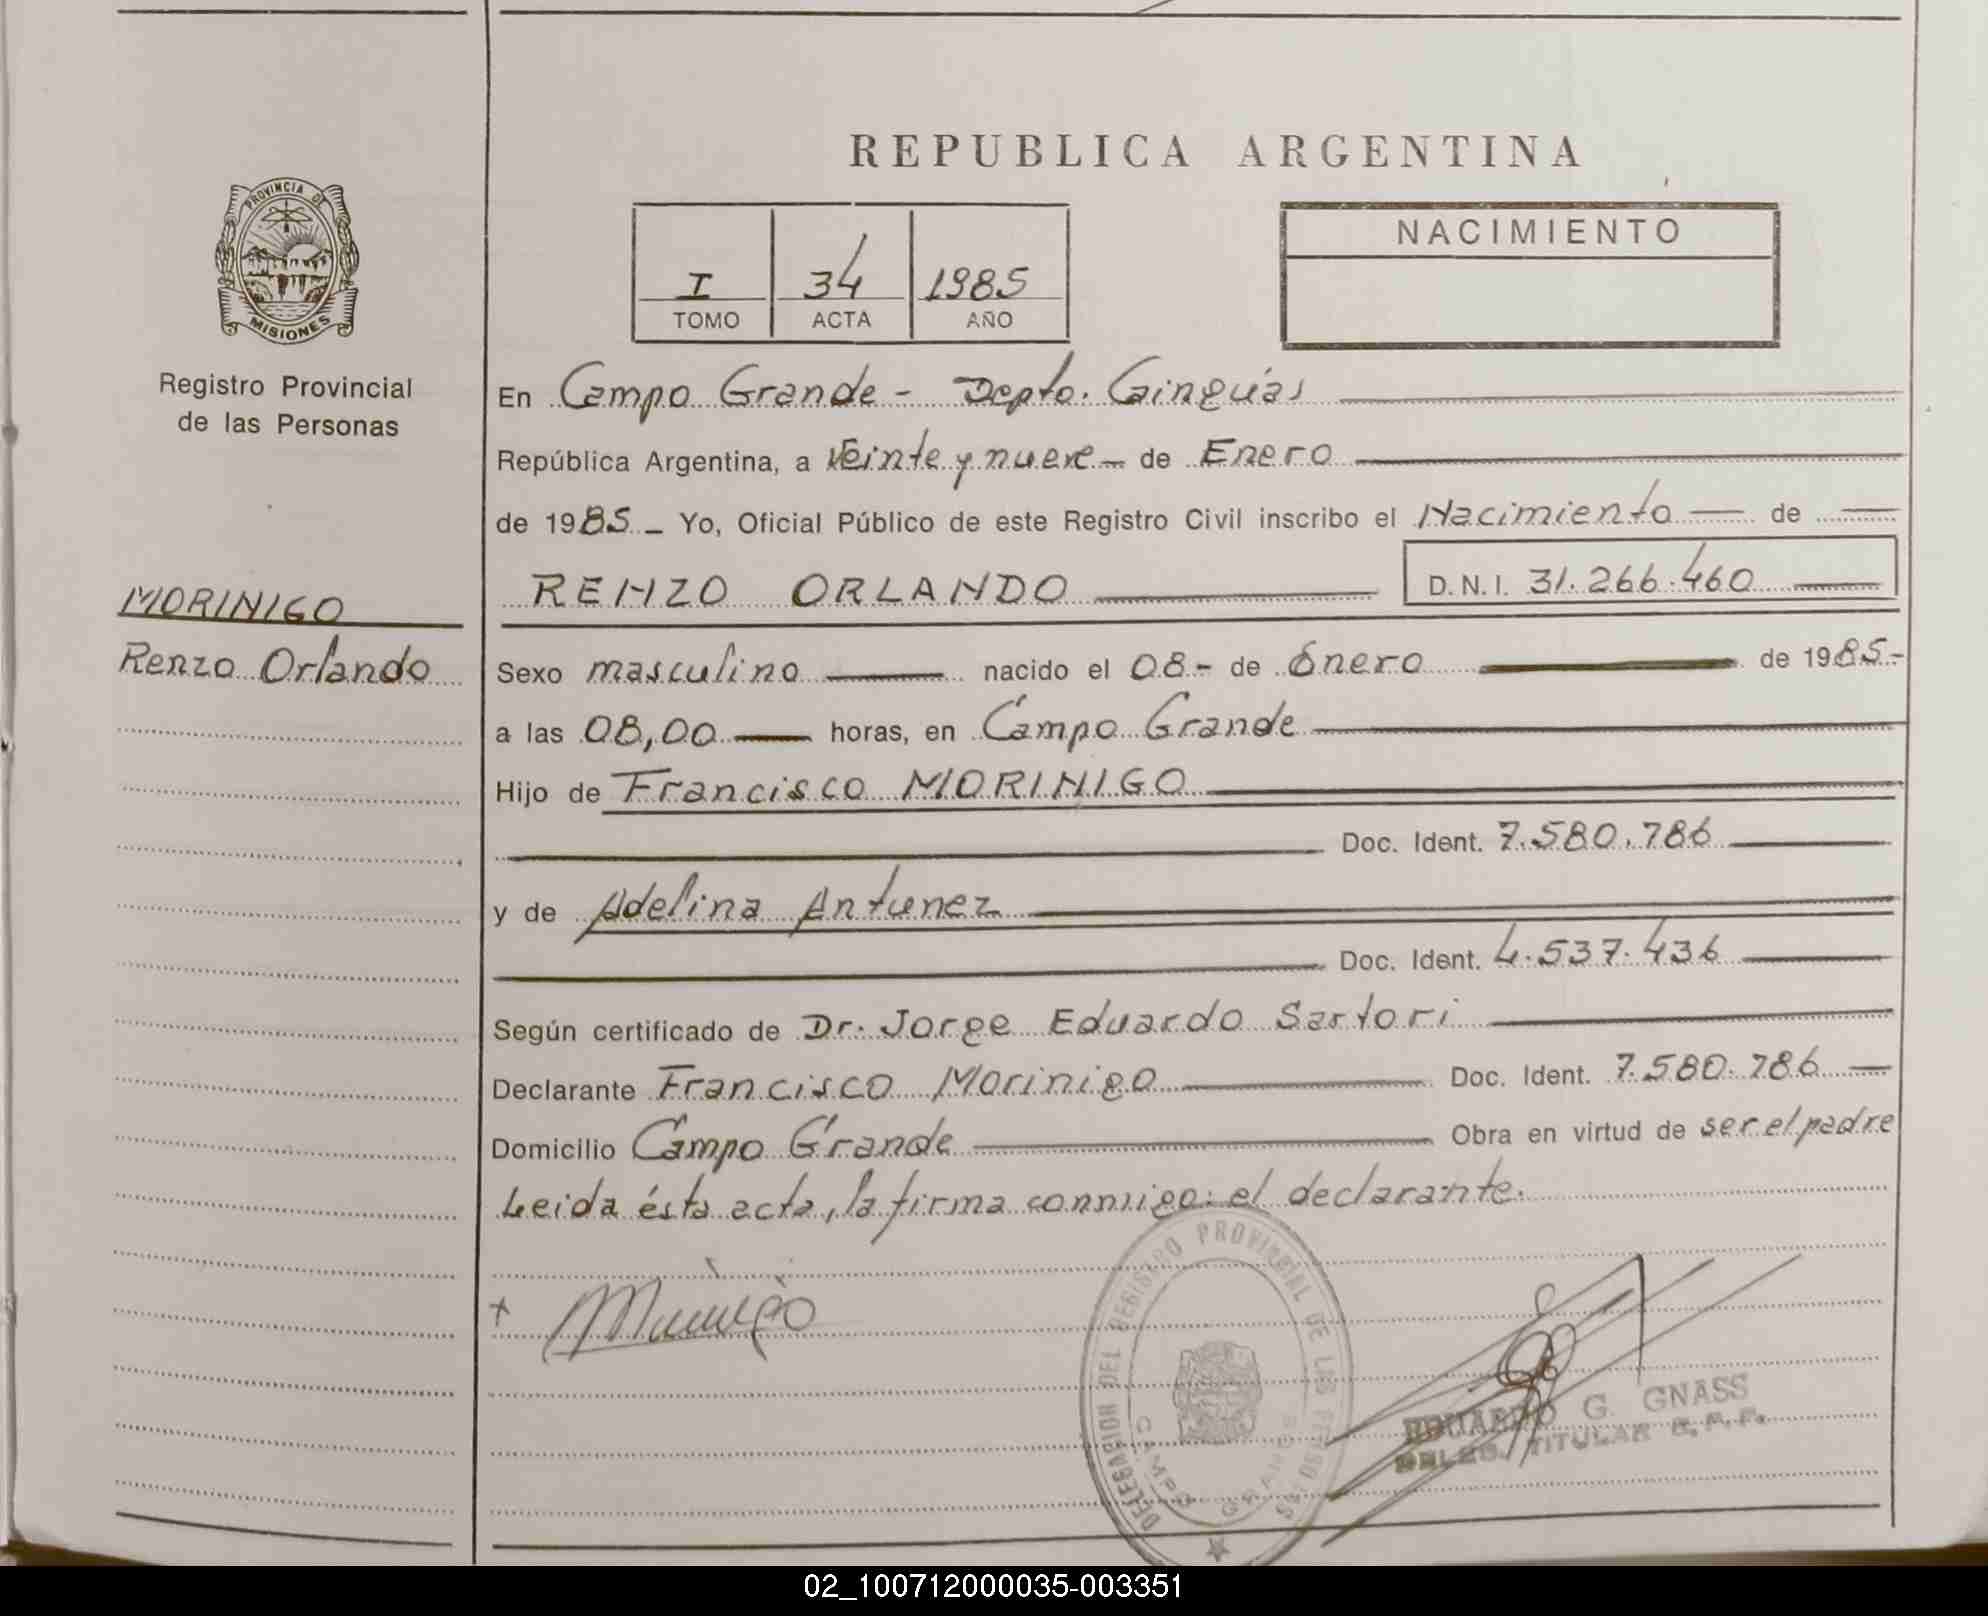 REPUBLICA ARGENTINA
PROVINCIA DE
MISIONES
Registro Provincial
de las Personas
I 34 1985
TOMO ACTA AÑO
NACIMIENTO
En Campo Grande - Depto. Cainguás
República Argentina, a Veinte y nueve - de Enero
de 1985 - Yo, Oficial Público de este Registro Civil inscribo el Nacimiento de
MORINIGO
Renzo Orlando
RENZO ORLANDO D.N.I. 31.266.460
Sexo masculino nacido el 08- de Enero de 1985-
a las 08,00 horas, en Campo Grande
Hijo de Francisco MORINIGO
Doc. Ident. 7.580.786
y de Adelina Antunez
Doc. Ident. 4.537.436
Según certificado de Dr. Jorge Eduardo Sartori
Declarante Francisco Morinigo Doc. Ident. 7.580.786
Domicilio Campo Grande Obra en virtud de ser el padre
Leida ésta acta, la firma conmigo: el declarante.
+ Morinigo
DELEGACION DEL REGISTRO PROVINCIAL DE LAS PERSONAS
CAMPO GRANDE
EDUARDO G. GNASS
DELEG. TITULAR R.P.P.
02_100712000035-003351